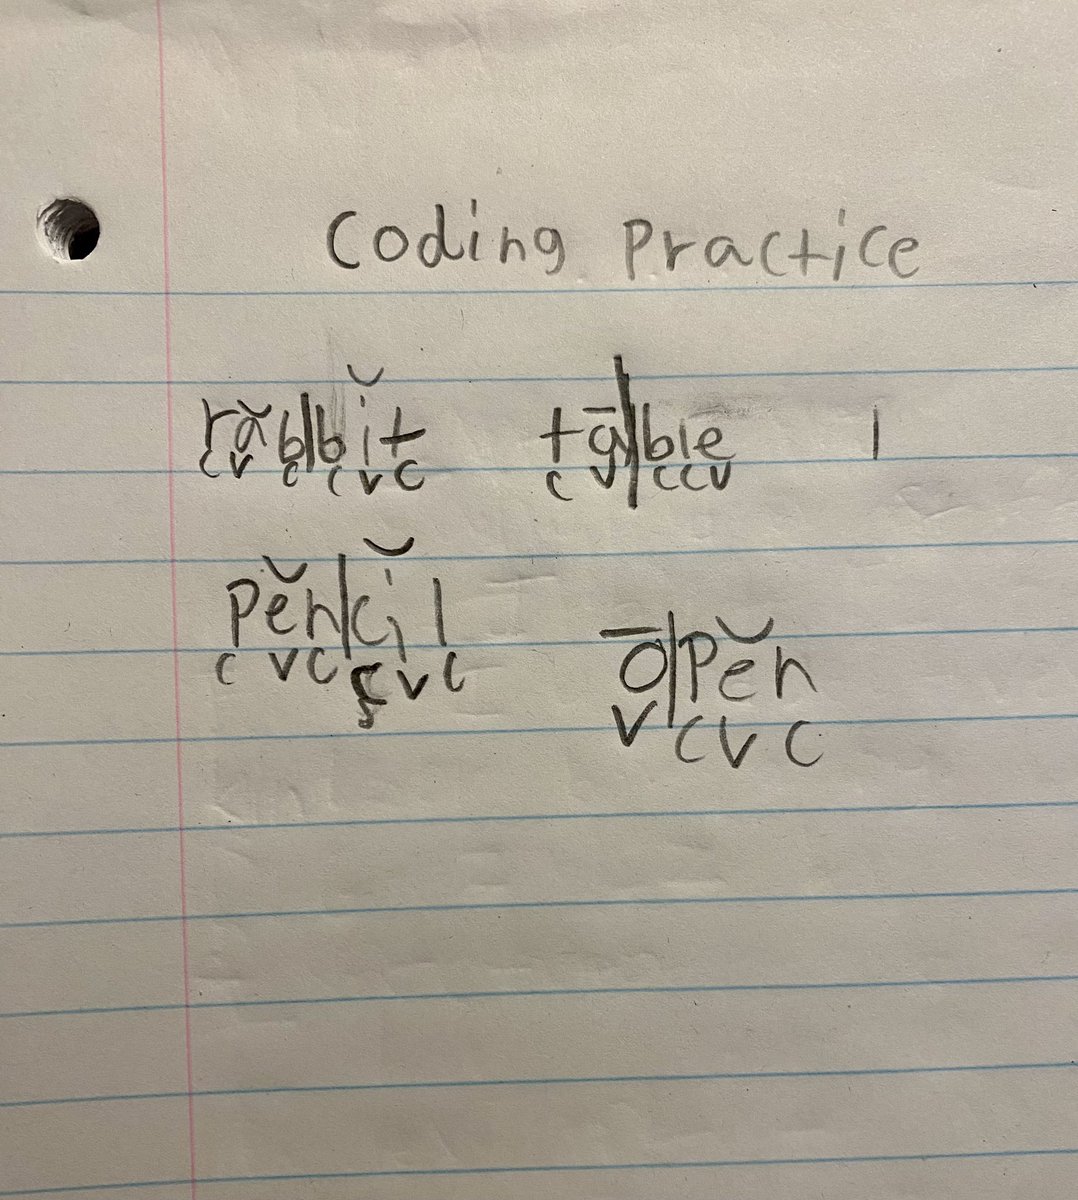 Coding Practice
răb|bĭt tā|ble |
C V C C V C C V C C V
pĕn|cĭl
ō|pĕn
C V C C V C
V C V C